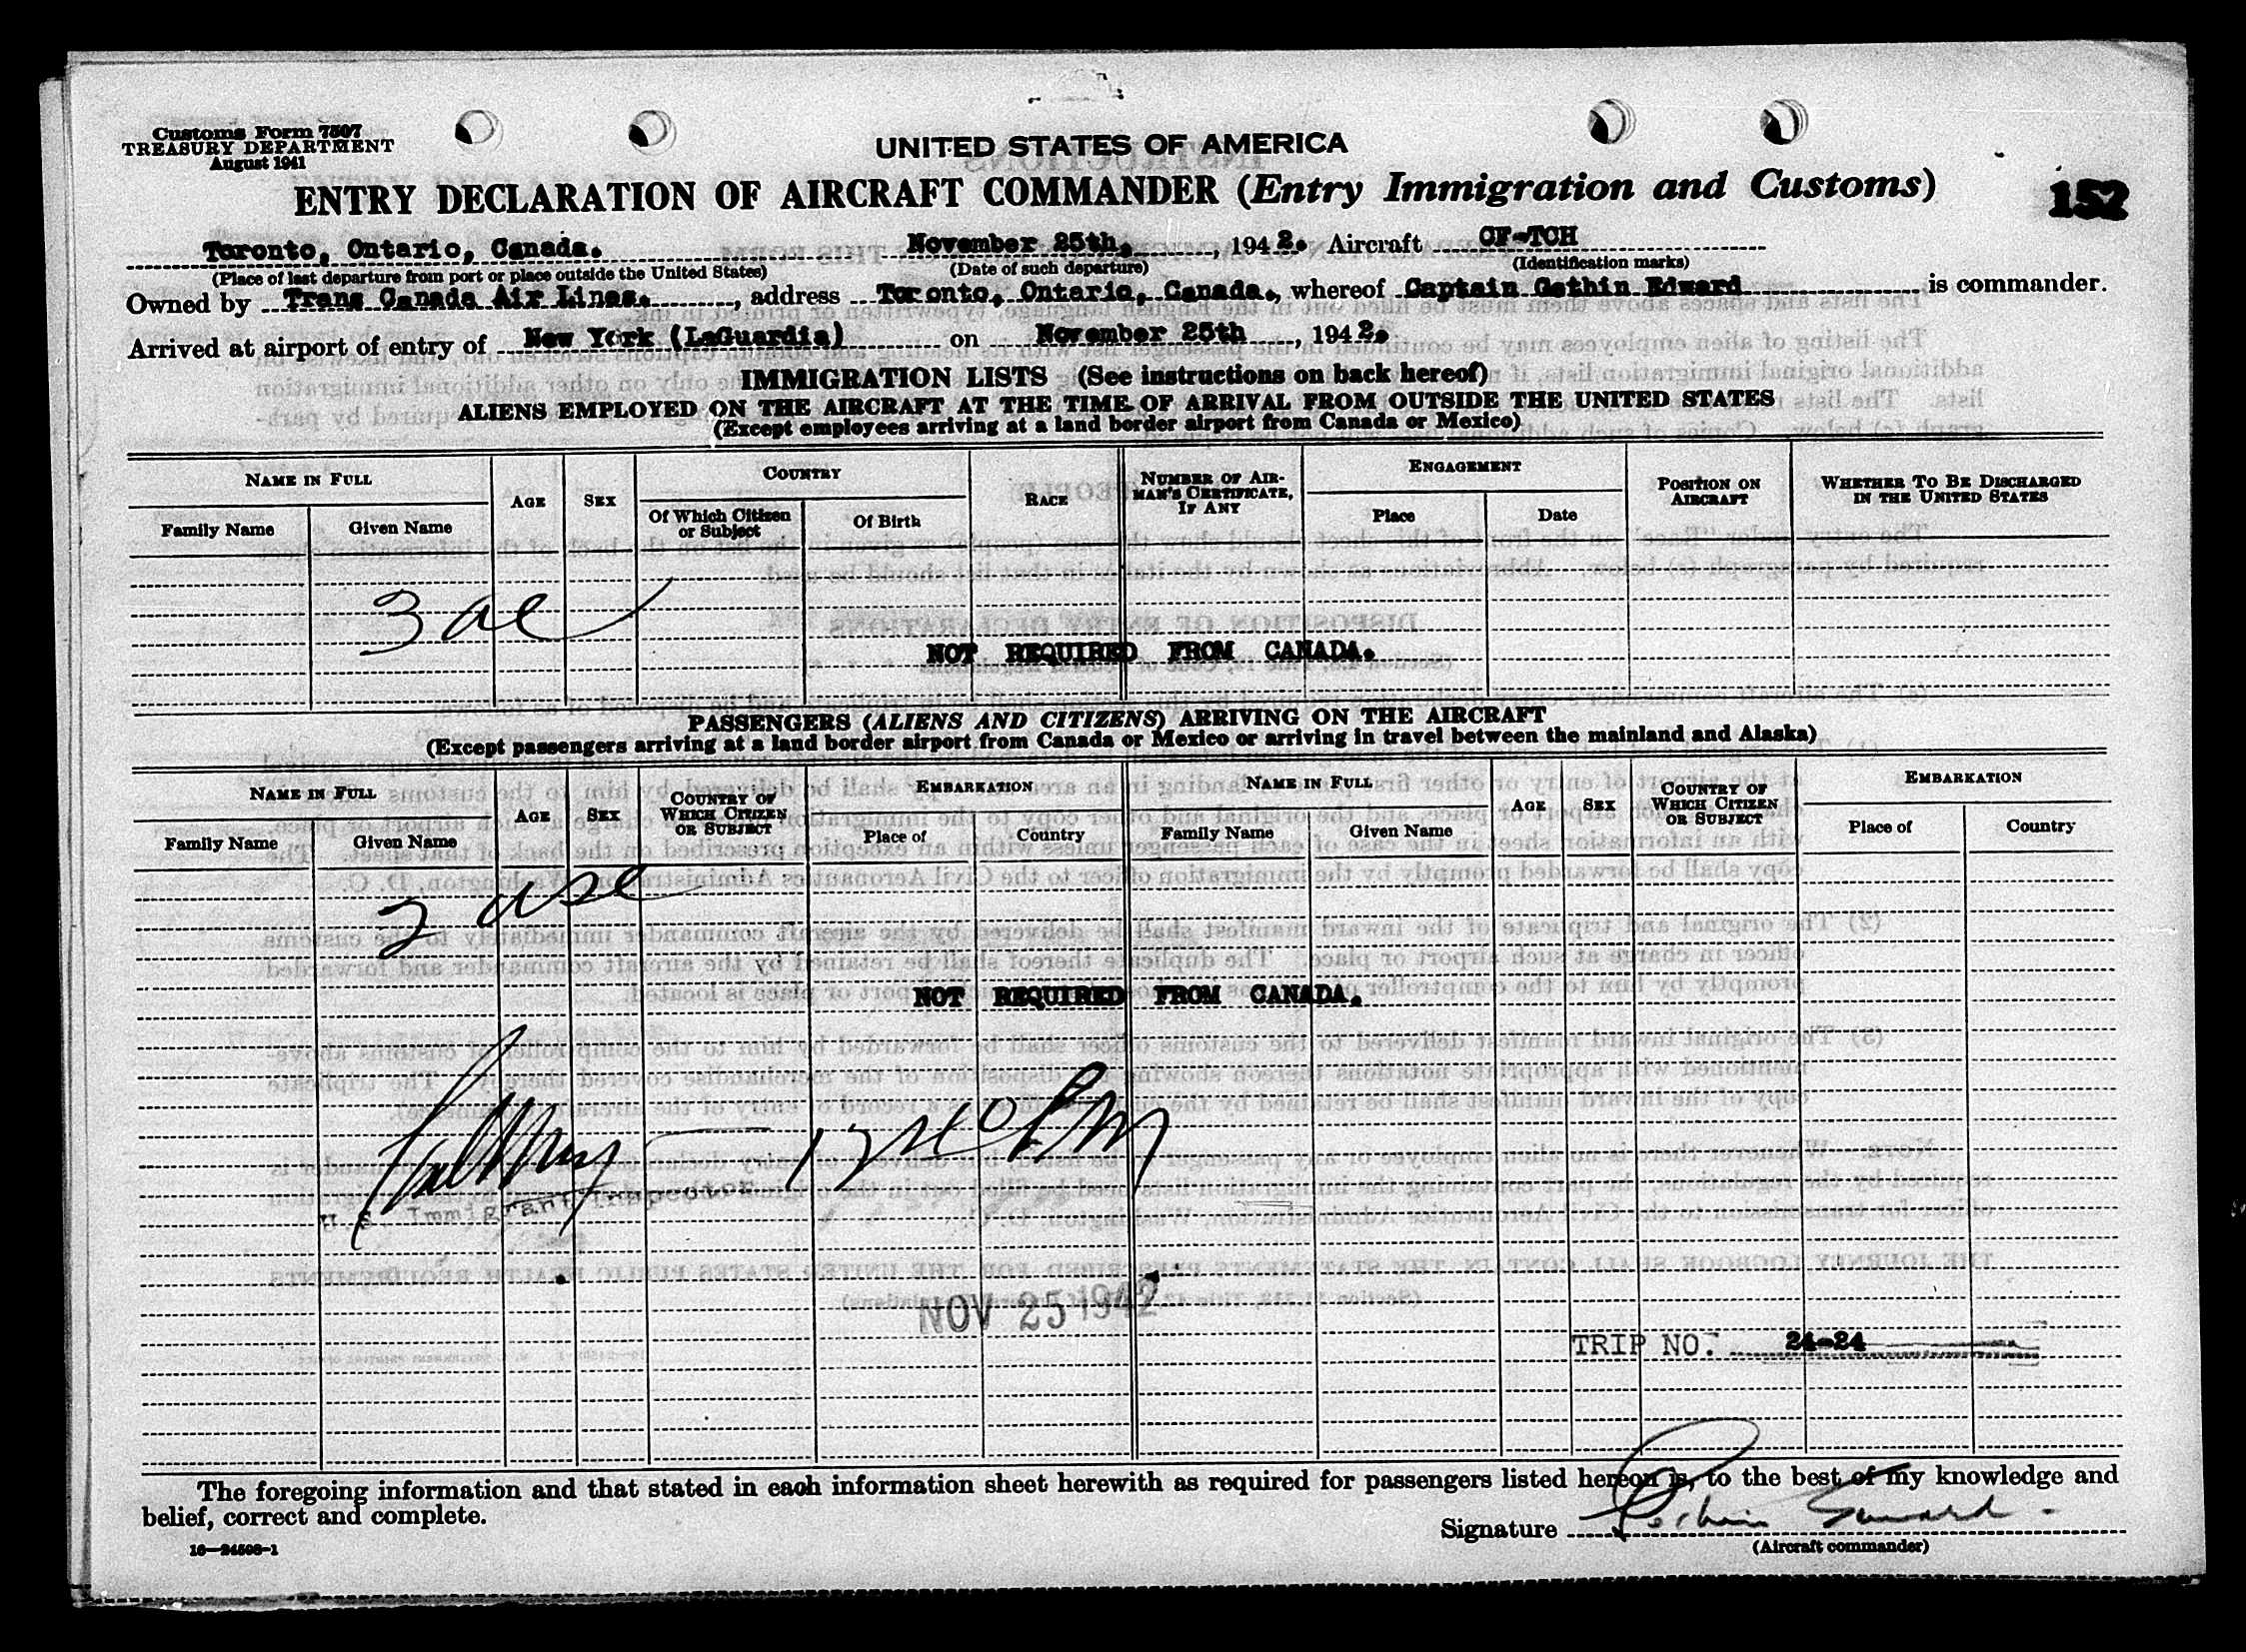 Customs Form 7507
TREASURY DEPARTMENT
August 1941
UNITED STATES OF AMERICA
ENTRY DECLARATION OF AIRCRAFT COMMANDER (Entry Immigration and Customs)
152
Toronto, Ontario, Canada. November 25th, , 1942. Aircraft CF-TCH
(Place of last departure from port or place outside the United States) (Date of such departure) (Identification marks)
Owned by Trans Canada Air Lines. , address Toronto, Ontario, Canada., whereof Captain Gethin Edward is commander.
Arrived at airport of entry of New York (LaGuardia) on November 25th , 1942.
IMMIGRATION LISTS (See instructions on back hereof)
ALIENS EMPLOYED ON THE AIRCRAFT AT THE TIME OF ARRIVAL FROM OUTSIDE THE UNITED STATES
(Except employees arriving at a land border airport from Canada or Mexico)
NAME IN FULL AGE SEX COUNTRY RACE NUMBER OF AIRMAN'S CERTIFICATE, IF ANY ENGAGEMENT POSITION ON AIRCRAFT WHETHER TO BE DISCHARGED IN THE UNITED STATES
Family Name Given Name Of Which Citizen or Subject Of Birth Place Date
3 ae
NOT REQUIRED FROM CANADA.
PASSENGERS (ALIENS AND CITIZENS) ARRIVING ON THE AIRCRAFT
(Except passengers arriving at a land border airport from Canada or Mexico or arriving in travel between the mainland and Alaska)
NAME IN FULL AGE SEX COUNTRY OF WHICH CITIZEN OR SUBJECT EMBARKATION NAME IN FULL AGE SEX COUNTRY OF WHICH CITIZEN OR SUBJECT EMBARKATION
Family Name Given Name Place of Country Family Name Given Name Place of Country
2 usc
NOT REQUIRED FROM CANADA.
U.S. Immigrant Inspector
NOV 25 1942
TRIP NO. 24-24
The foregoing information and that stated in each information sheet herewith as required for passengers listed hereon is, to the best of my knowledge and
belief, correct and complete.
Signature Gethin Edward
(Aircraft commander)
16—24508-1